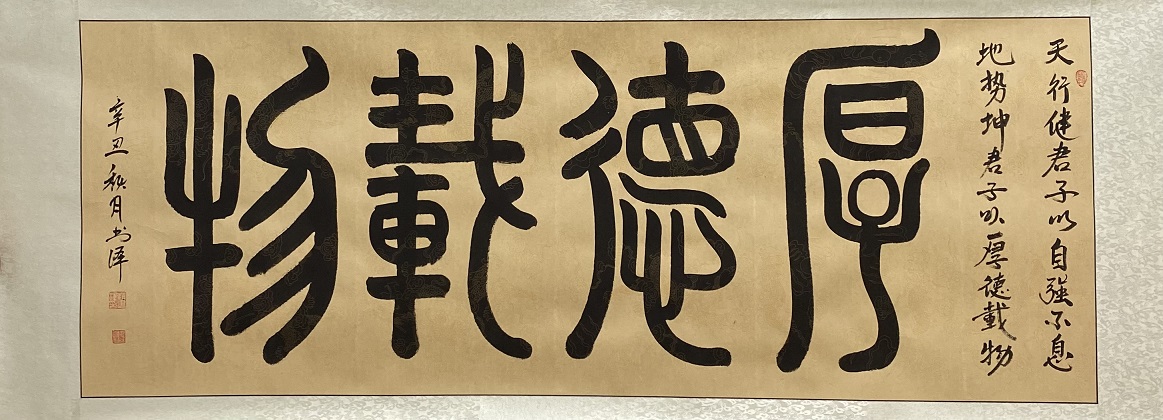 天行健君子以自强不息
地势坤君子以厚德載物
厚德載物
辛丑秋月